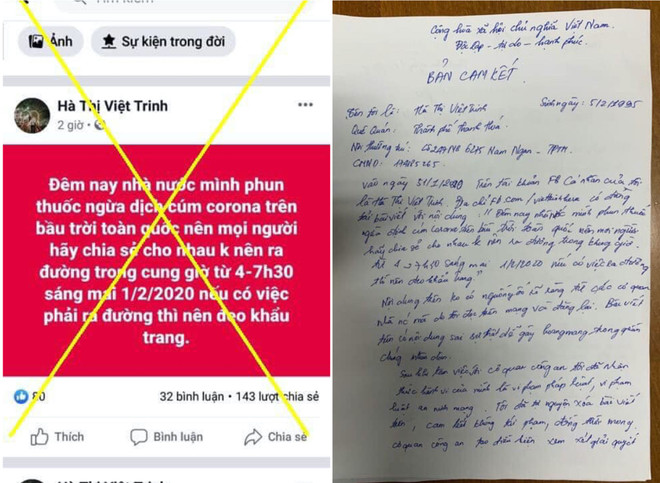 Tìm kiếm
Ảnh
Sự kiện trong đời
Hà Thị Việt Trinh
2 giờ
Đêm nay nhà nước mình phun
thuốc ngừa dịch cúm corona trên
bầu trời toàn quốc nên mọi người
hãy chia sẻ cho nhau k nên ra
đường trong cung giờ từ 4-7h30
sáng mai 1/2/2020 nếu có việc
phải ra đường thì nên đeo khẩu
trang.
80
32 bình luận • 143 lượt chia sẻ
Thích
Bình luận
Chia sẻ
Hà Thị Việt Trinh
Cộng hòa xã hội chủ nghĩa Việt Nam.
Độc lập - tự do - hạnh phúc.
BẢN CAM KẾT.
Tên tôi là: Hà Thị Việt Trinh Sinh ngày: 5/2/1995
Quê Quán: Thành phố Thanh Hoá.
Nơi thường trú: Nam Ngạn - TPTH.
CMND:
Vào ngày 31/1/2020 Trên tài khoản FB Cá nhân của tôi
là Hà Thị Việt Trinh, Địa chỉ Fb.com/ có đăng
tải bài viết với nội dung: "Đêm nay nhà nước mình phun thuốc
ngừa dịch cúm corona trên bầu trời toàn quốc nên mọi người
hãy chia sẻ cho nhau k nên ra đường trong khung giờ
từ 4 - 7h30 sáng mai 1/2/2020 nếu có việc ra đường
thì nên đeo khẩu trang"
Nội dung trên ko có nguồn gốc rõ ràng từ các cơ quan
nhà nước mà do tôi đọc trên mạng và đăng lại. Bài viết
trên có nội dung sai sự thật dễ gây hoang mang trong quần
chúng nhân dân.
Sau khi làm việc với cơ quan công an tôi đã nhận
thức hành vi của mình là vi phạm pháp luật, vi phạm
luật an ninh mạng. Tôi đã tự nguyện xóa bài viết
trên, cam kết không tái phạm, đồng thời mong
cơ quan công an tạo điều kiện xem xét giải quyết